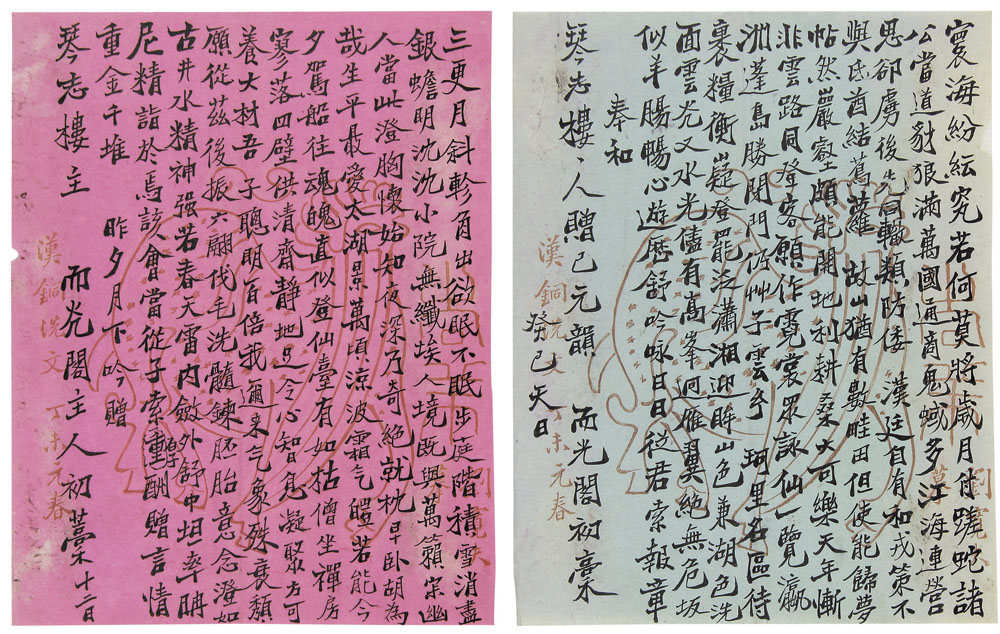 寰海紛紜究若何莫將歲月付蹉跎諸
公當道豺狼滿萬國通商鬼蜮多江海連營
思卻虜後先同轍類防倭 漢廷自有和戎策不
與氐酋結蔦蘿 故山猶有數畦田但使能歸夢
帖然巖壑頗能開地利耕桑大可樂天年慚
非雲路同登客願作霓裳眾詠仙一覽瀛
洲蓬島勝閉門仍艸子雲玄 珂里名區待
裹糧衡嶷登罷泛瀟湘迎眸山色兼湖色洗
面雲光又水光儘有高峯迴雁翼絕無危坂
似羊腸暢心遊歷舒吟咏日日從君索報章
奉和
琴志樓主人贈己元韻 而光閣初稾
癸巳天日
漢銅洗文 丁未元春
三更月斜軫角出欲眠不眠步庭階積雪消盡
銀蟾明沈沈小院無纖埃人境既與萬籟寂幽
人當此澄胸懷始知夜深乃奇絕就枕早臥胡為
哉生平最愛太湖景萬頃涼波霜气皚若能今
夕駕船往魂魄直似登仙臺有如枯僧坐禪房
寥落四壁供清齋靜地足令心智息凝聚方可
養大材吾子聰明百倍我邇來气象殊衰頹
願從茲後振六翮伐毛洗髓鍊胚胎意念澄如
古井水精神强若春天雷內斂外舒中坦率聃
尼精詣於焉該會當從子索瓊酬贈言情
重金千堆 昨夕月下吟贈
琴志樓主 而光閣主人初稾十二日
漢銅洗文 丁未元春